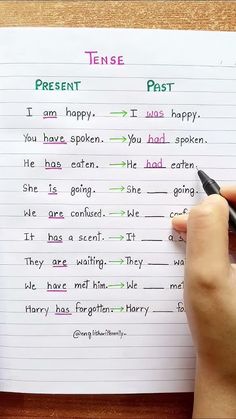 TENSE
PRESENT PAST
I am happy. → I was happy.
You have spoken. → You had spoken.
He has eaten. → He had eaten.
She is going. → She ___ going.
We are confused. → We ___
It has a scent. → It ___ a s
They are waiting. → They ___ wa
We have met him. → We ___ met
Harry has forgotten. → Harry ___ fo
@englishwithemily_